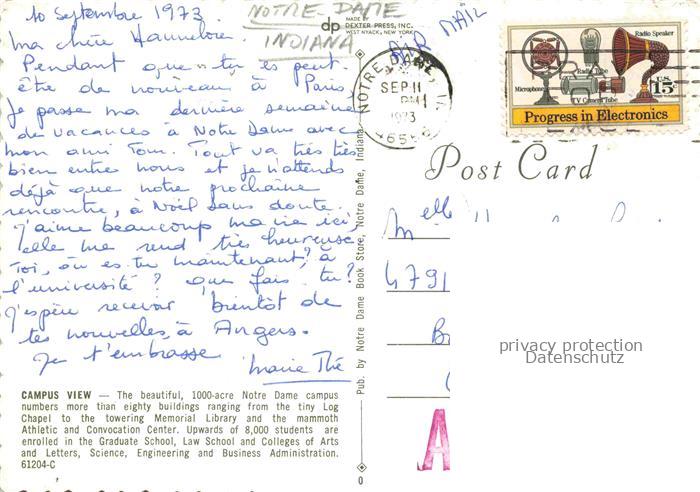 10 Septembre 1973.
NOTRE-DAME
INDIANA
dp
MADE BY
DEXTER PRESS, INC.
WEST NYACK, NEW YORK
AIR MAIL
ma chère Hannelore.
Pendant que tu es peut-
être de nouveau à Paris,
je passe ma dernière semaine
de vacances à Notre Dame avec
mon ami Tom. Tout va très très
bien entre nous et je n'attends
déjà que notre prochaine
rencontre, à Noël sans doute.
J'aime beaucoup ma vie ici,
elle me rend très heureuse
Toi, où es-tu maintenant? à
l'université? que fais-tu?
J'espère recevoir bientôt de
tes nouvelles, à Angers.
Je t'embrasse
Marie Thé
CAMPUS VIEW — The beautiful, 1000-acre Notre Dame campus
numbers more than eighty buildings ranging from the tiny Log
Chapel to the towering Memorial Library and the mammoth
Athletic and Convocation Center. Upwards of 8,000 students are
enrolled in the Graduate School, Law School and Colleges of Arts
and Letters, Science, Engineering and Business Administration.
61204-C
Pub. by Notre Dame Book Store, Notre Dame, Indiana
NOTRE DAME, IN
SEP 11
PM
1973
46556
Radio Speaker
Radio Tube
Microphone
TV Camera Tube
U.S.
15c
Progress in Electronics
Post Card
Melle
4791
B
A
privacy protection
Datenschutz